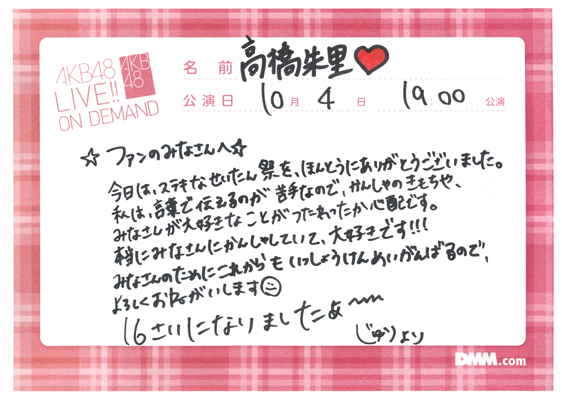 AKB48
LIVE!!
ON DEMAND
AKB
48
名前 高橋朱里
公演日 10月 4日 19:00 公演
☆ ファンのみなさんへ☆
今日は、ステキなせいたん祭を、ほんとうにありがとうございました。
私は、言葉で伝えるのが苦手なので、かんしゃのきもちや、
みなさんが大好きなことがつたわったか心配です。
本当にみなさんにかんしゃしていて、大好きです!!!
みなさんのためにこれからもいっしょうけんめいがんばるので、
よろしくおねがいします☺
16さいになりましたぁ〜〜
じゅりより
DMM.com